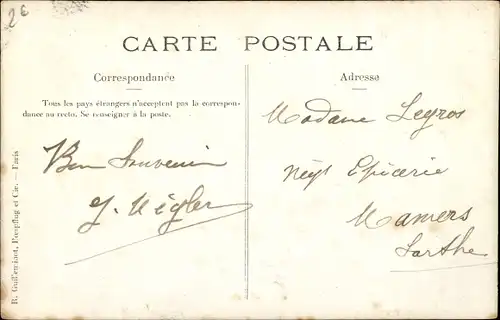 2€
CARTE POSTALE
Correspondance
Tous les pays étrangers n'acceptent pas la correspon-
dance au recto. Se renseigner à la poste.
Bon Souvenir
Adresse
Madame Legros
Négt Epicerie
Mamers
Sarthe
R. Guilleminot, Bœspflug et Cie. — Paris